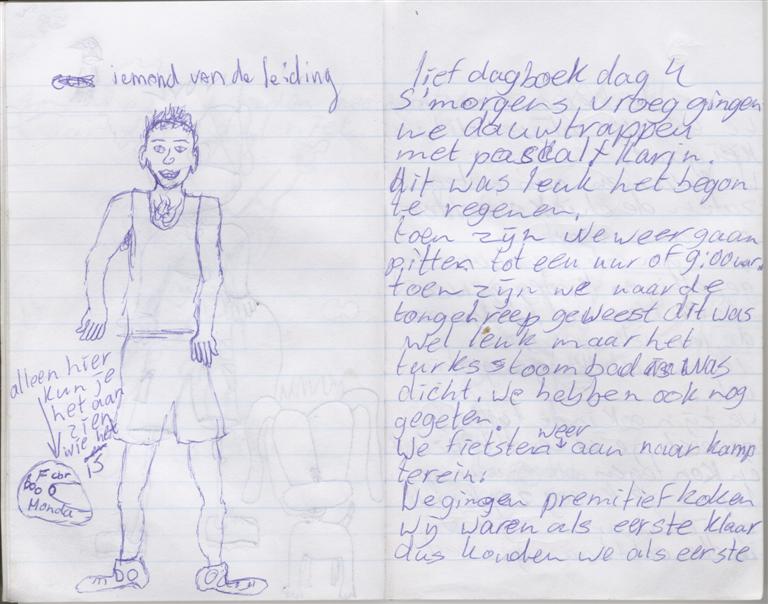 iemand van de leiding
alleen hier
kun je
het aan
zien
wie het
is
Monda
DO
lief dagboek dag 4
S'morgens vroeg gingen
we dauwtrappen
met pascal + Karin.
dit was leuk het begon
te regenen.
toen zijn we weer gaan
pitten tot een uur of 9:00 uur.
toen zijn we naar de
tongelreep geweest dit was
wel leuk maar het
turks stoombad was
dicht. we hebben ook nog
gegeten.
We fietsten weer aan naar kamp
terein.
We gingen premitief koken
wij waren als eerste klaar
dus konden we als eerste